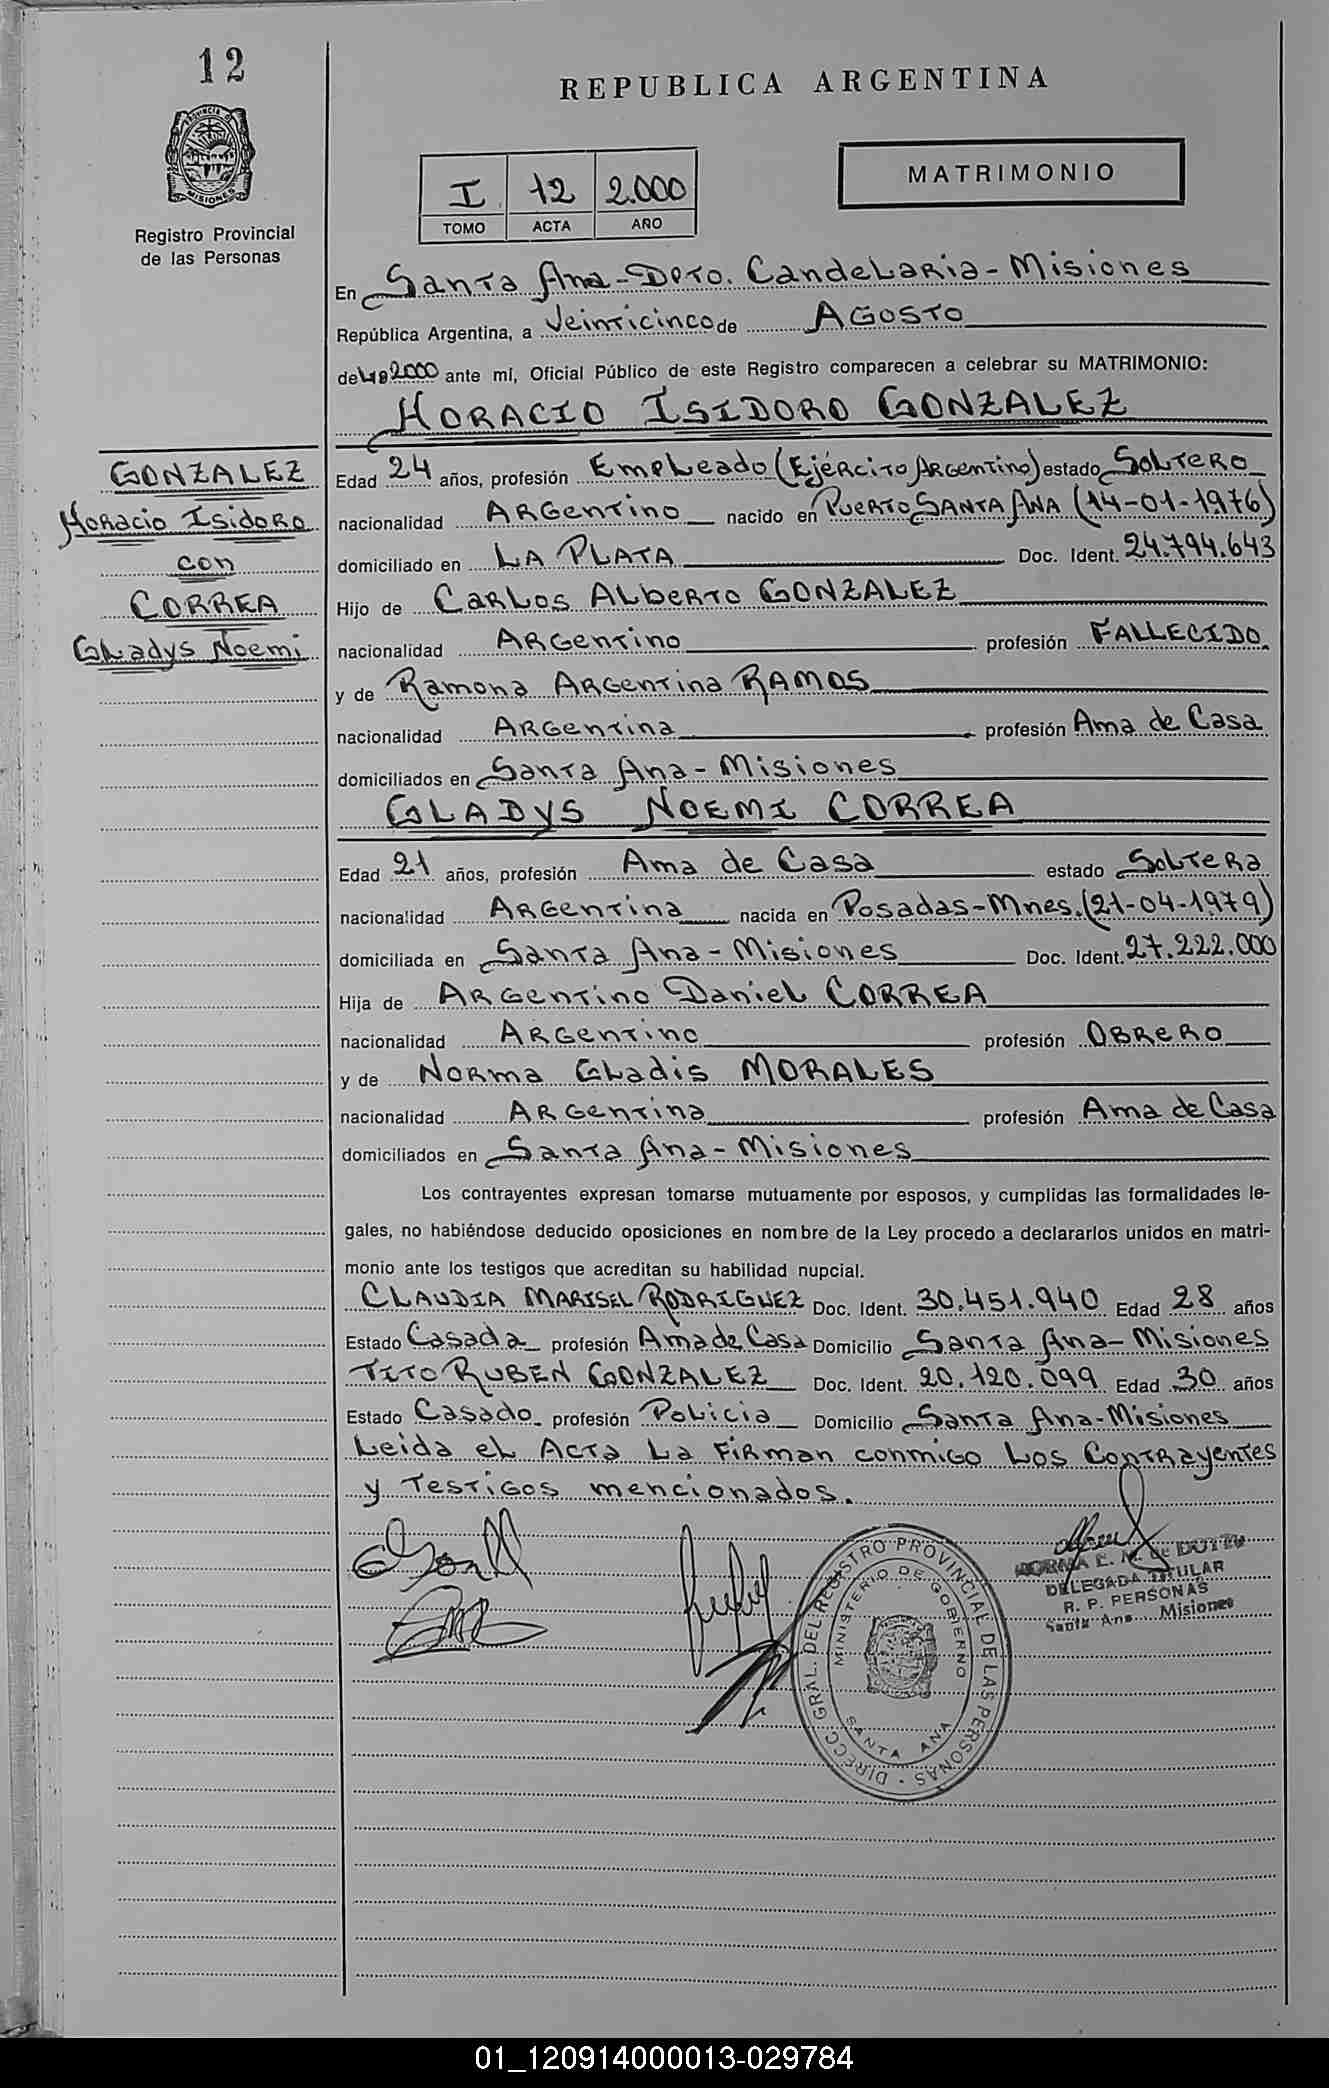 12
REPUBLICA ARGENTINA
PROVINCIA DE MISIONES
Registro Provincial
de las Personas
I 12 2.000
TOMO ACTA AÑO
MATRIMONIO
En Santa Ana-Dpto. Candelaria-Misiones
República Argentina, a Veinticinco de AGOSTO
del 2000 ante mí, Oficial Público de este Registro comparecen a celebrar su MATRIMONIO:
HORACIO ISIDORO GONZALEZ
GONZALEZ
Horacio Isidoro
con
CORREA
Gladys Noemi
Edad 24 años, profesión Empleado (Ejército Argentino) estado Soltero
nacionalidad Argentino nacido en Puerto Santa Ana (14-01-1976)
domiciliado en LA PLATA Doc. Ident. 24.794.643
Hijo de Carlos Alberto GONZALEZ
nacionalidad Argentino profesión FALLECIDO.
y de Ramona Argentina RAMOS
nacionalidad Argentina profesión Ama de Casa
domiciliados en Santa Ana-Misiones
GLADYS NOEMI CORREA
Edad 21 años, profesión Ama de Casa estado Soltera
nacionalidad Argentina nacida en Posadas-Mnes.(21-04-1979)
domiciliada en Santa Ana-Misiones Doc. Ident. 27.222.000
Hija de Argentino Daniel CORREA
nacionalidad Argentino profesión Obrero
y de Norma Gladis MORALES
nacionalidad Argentina profesión Ama de Casa
domiciliados en Santa Ana-Misiones
Los contrayentes expresan tomarse mutuamente por esposos, y cumplidas las formalidades le-
gales, no habiéndose deducido oposiciones en nombre de la Ley procedo a declararlos unidos en matri-
monio ante los testigos que acreditan su habilidad nupcial.
CLAUDIA MARISEL RODRIGUEZ Doc. Ident. 30.451.940 Edad 28 años
Estado Casada profesión Ama de Casa Domicilio Santa Ana-Misiones
TITO RUBEN GONZALEZ Doc. Ident. 20.120.099 Edad 30 años
Estado Casado profesión Policia Domicilio Santa Ana-Misiones
Leida el Acta la firman conmigo los Contrayentes
y Testigos mencionados.
DIRECC. GRAL. DEL REGISTRO PROVINCIAL DE LAS PERSONAS
MINISTERIO DE GOBIERNO
SANTA ANA
NORMA E. M. de
DELEGADA TITULAR
R. P. PERSONAS
Santa Ana Misiones
01_120914000013-029784